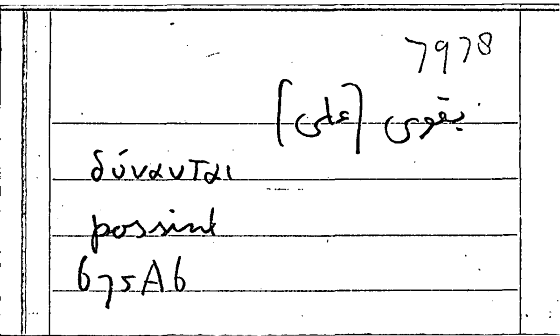 7978
يقوى [على]
δύνανται
possint
675A6